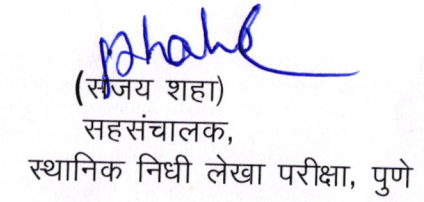 (संजय शहा)
सहसंचालक,
स्थानिक निधी लेखा परीक्षा, पुणे